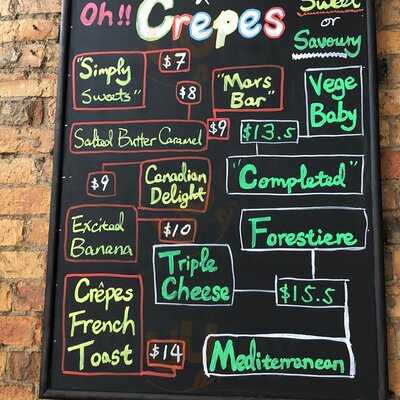 Oh!! Crêpes
Sweet
or
Savoury
"Simply
Sweets"
$7
$8
"Mars
Bar"
Vege
Baby
Salted Butter Caramel
$9
$13.5
$9
Canadian
Delight
"Completed"
Excited
Banana
$10
Forestiere
Triple
Cheese
$15.5
Crêpes
French
Toast
$14
Mediterranean